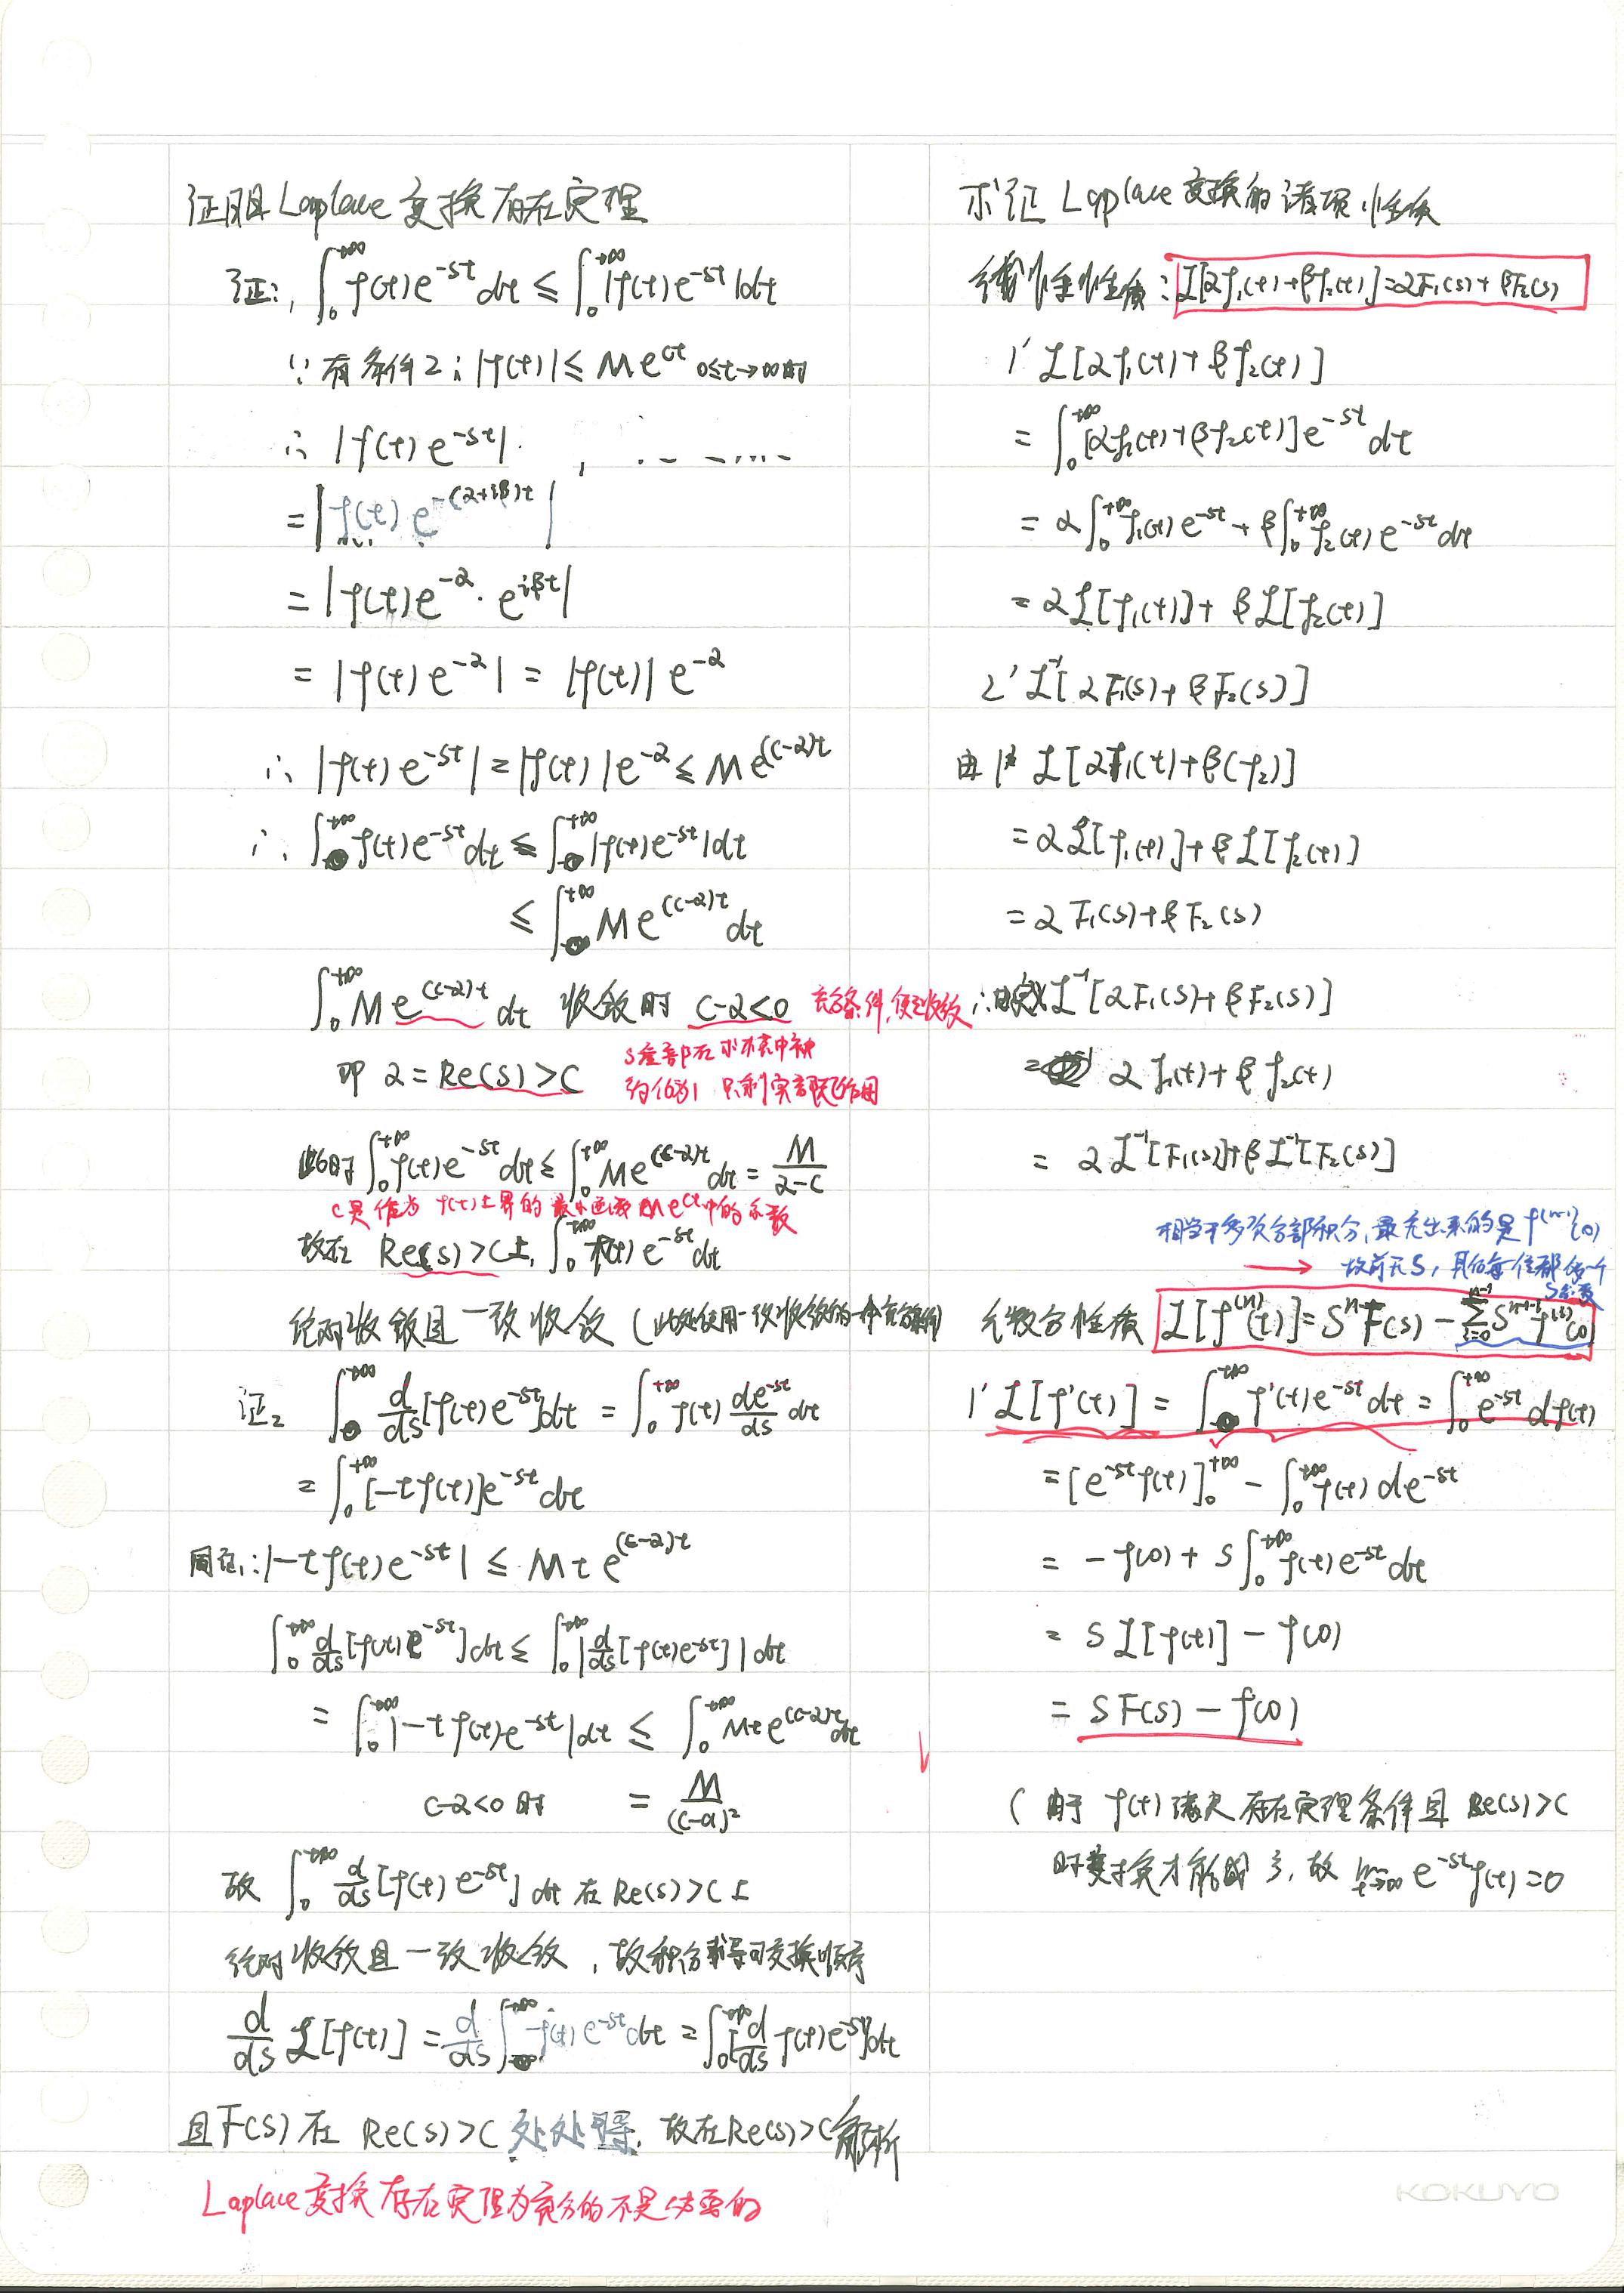 证明Laplace变换存在定理
证₁: ∫₀^{+∞} f(t)e^{-st}dt ≤ ∫₀^{+∞}|f(t)e^{-st}|dt
∵有条件2: |f(t)| ≤ Me^{ct} 0≤t→∞时
∴ |f(t)e^{-st}|
= |f(t)e^{-(α+iβ)t}|
= |f(t)e^{-α}·e^{iβt}|
= |f(t)e^{-α}| = |f(t)|e^{-α}
∴ |f(t)e^{-st}| = |f(t)|e^{-α} ≤ Me^{(c-α)t}
∴ ∫₀^{+∞} f(t)e^{-st}dt ≤ ∫₀^{+∞}|f(t)e^{-st}|dt
≤ ∫₀^{+∞} Me^{(c-α)t}dt
∫₀^{+∞} Me^{(c-α)t}dt 收敛时 c-α<0 充分条件,使之收敛
即 α = Re(s) > c
S虚部在求模中被
约化为1 只剩实部起作用
此时 ∫₀^{+∞} f(t)e^{-st}dt ≤ ∫₀^{+∞} Me^{(c-α)t}dt = M/(α-c)
c是作为f(t)上界的最小函数Me^{ct}中的系数
故在 Re(s)>c上, ∫₀^{+∞} f(t)e^{-st}dt
绝对收敛且一致收敛 (此处使用一致收敛的一个充分条件)
证₂ ∫₀^{+∞} d/ds[f(t)e^{-st}]dt = ∫₀^{+∞} f(t) de^{-st}/ds dt
= ∫₀^{+∞}[-tf(t)]e^{-st}dt
同证₁: |-tf(t)e^{-st}| ≤ Mte^{(c-α)t}
∫₀^{+∞} d/ds[f(t)e^{-st}]dt ≤ ∫₀^{+∞}|d/ds[f(t)e^{-st}]|dt
= ∫₀^{+∞}|-tf(t)e^{-st}|dt ≤ ∫₀^{+∞} Mte^{(c-α)t}dt
c-α<0时 = M/(c-α)²
故 ∫₀^{+∞} d/ds[f(t)e^{-st}]dt 在Re(s)>c上
绝对收敛且一致收敛,故积分求导可交换顺序
d/ds ℒ[f(t)] = d/ds ∫₀^{+∞} f(t)e^{-st}dt = ∫₀^{+∞}[d/ds f(t)e^{-st}]dt
且F(s)在 Re(s)>c 处处可导, 故在Re(s)>c解析
Laplace变换存在定理为充分的不是必要的
求证 Laplace变换的诸项性质
线性性质: ℒ[αf₁(t)+βf₂(t)]=αF₁(s)+βF₂(s)
1' ℒ[αf₁(t)+βf₂(t)]
= ∫₀^{+∞}[αf₁(t)+βf₂(t)]e^{-st}dt
= α∫₀^{+∞}f₁(t)e^{-st}+β∫₀^{+∞}f₂(t)e^{-st}dt
= αℒ[f₁(t)]+βℒ[f₂(t)]
2' ℒ⁻¹[αF₁(s)+βF₂(s)]
由1' ℒ[αf₁(t)+β(f₂)]
= αℒ[f₁(t)]+βℒ[f₂(t)]
= αF₁(s)+βF₂(s)
∴由定义ℒ⁻¹[αF₁(s)+βF₂(s)]
= αf₁(t)+βf₂(t)
= αℒ⁻¹[F₁(s)]+βℒ⁻¹[F₂(s)]
相当于多次分部积分,最先出来的是f^{(n-1)}(0)
故前无S, 其他每位都多一个
S系数
微分性质 ℒ[f^{(n)}(t)]=SⁿF(s)-∑_{i=0}^{n-1}S^{n-1-i}f^{(i)}(0)
1' ℒ[f'(t)] = ∫₀^{+∞} f'(t)e^{-st}dt = ∫₀^{+∞}e^{-st}df(t)
= [e^{-st}f(t)]₀^{+∞} - ∫₀^{+∞}f(t)de^{-st}
= -f(0)+S∫₀^{+∞}f(t)e^{-st}dt
= Sℒ[f(t)]-f(0)
= SF(s)-f(0)
(由于 f(t)满足存在定理条件且 Re(s)>c
时变换才能成立,故 lim_{t→∞} e^{-st}f(t)=0
KOKUYO